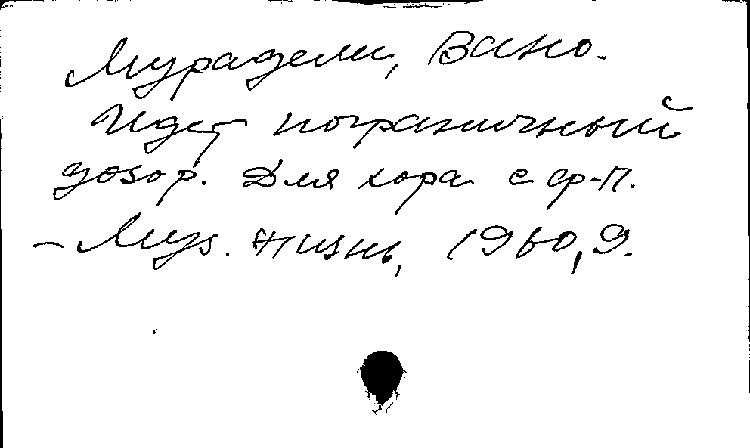 Мурадели, Вано.
Идет пограничный
дозор. Для хора с ф-п.
– Муз. жизнь, 1960, 9.